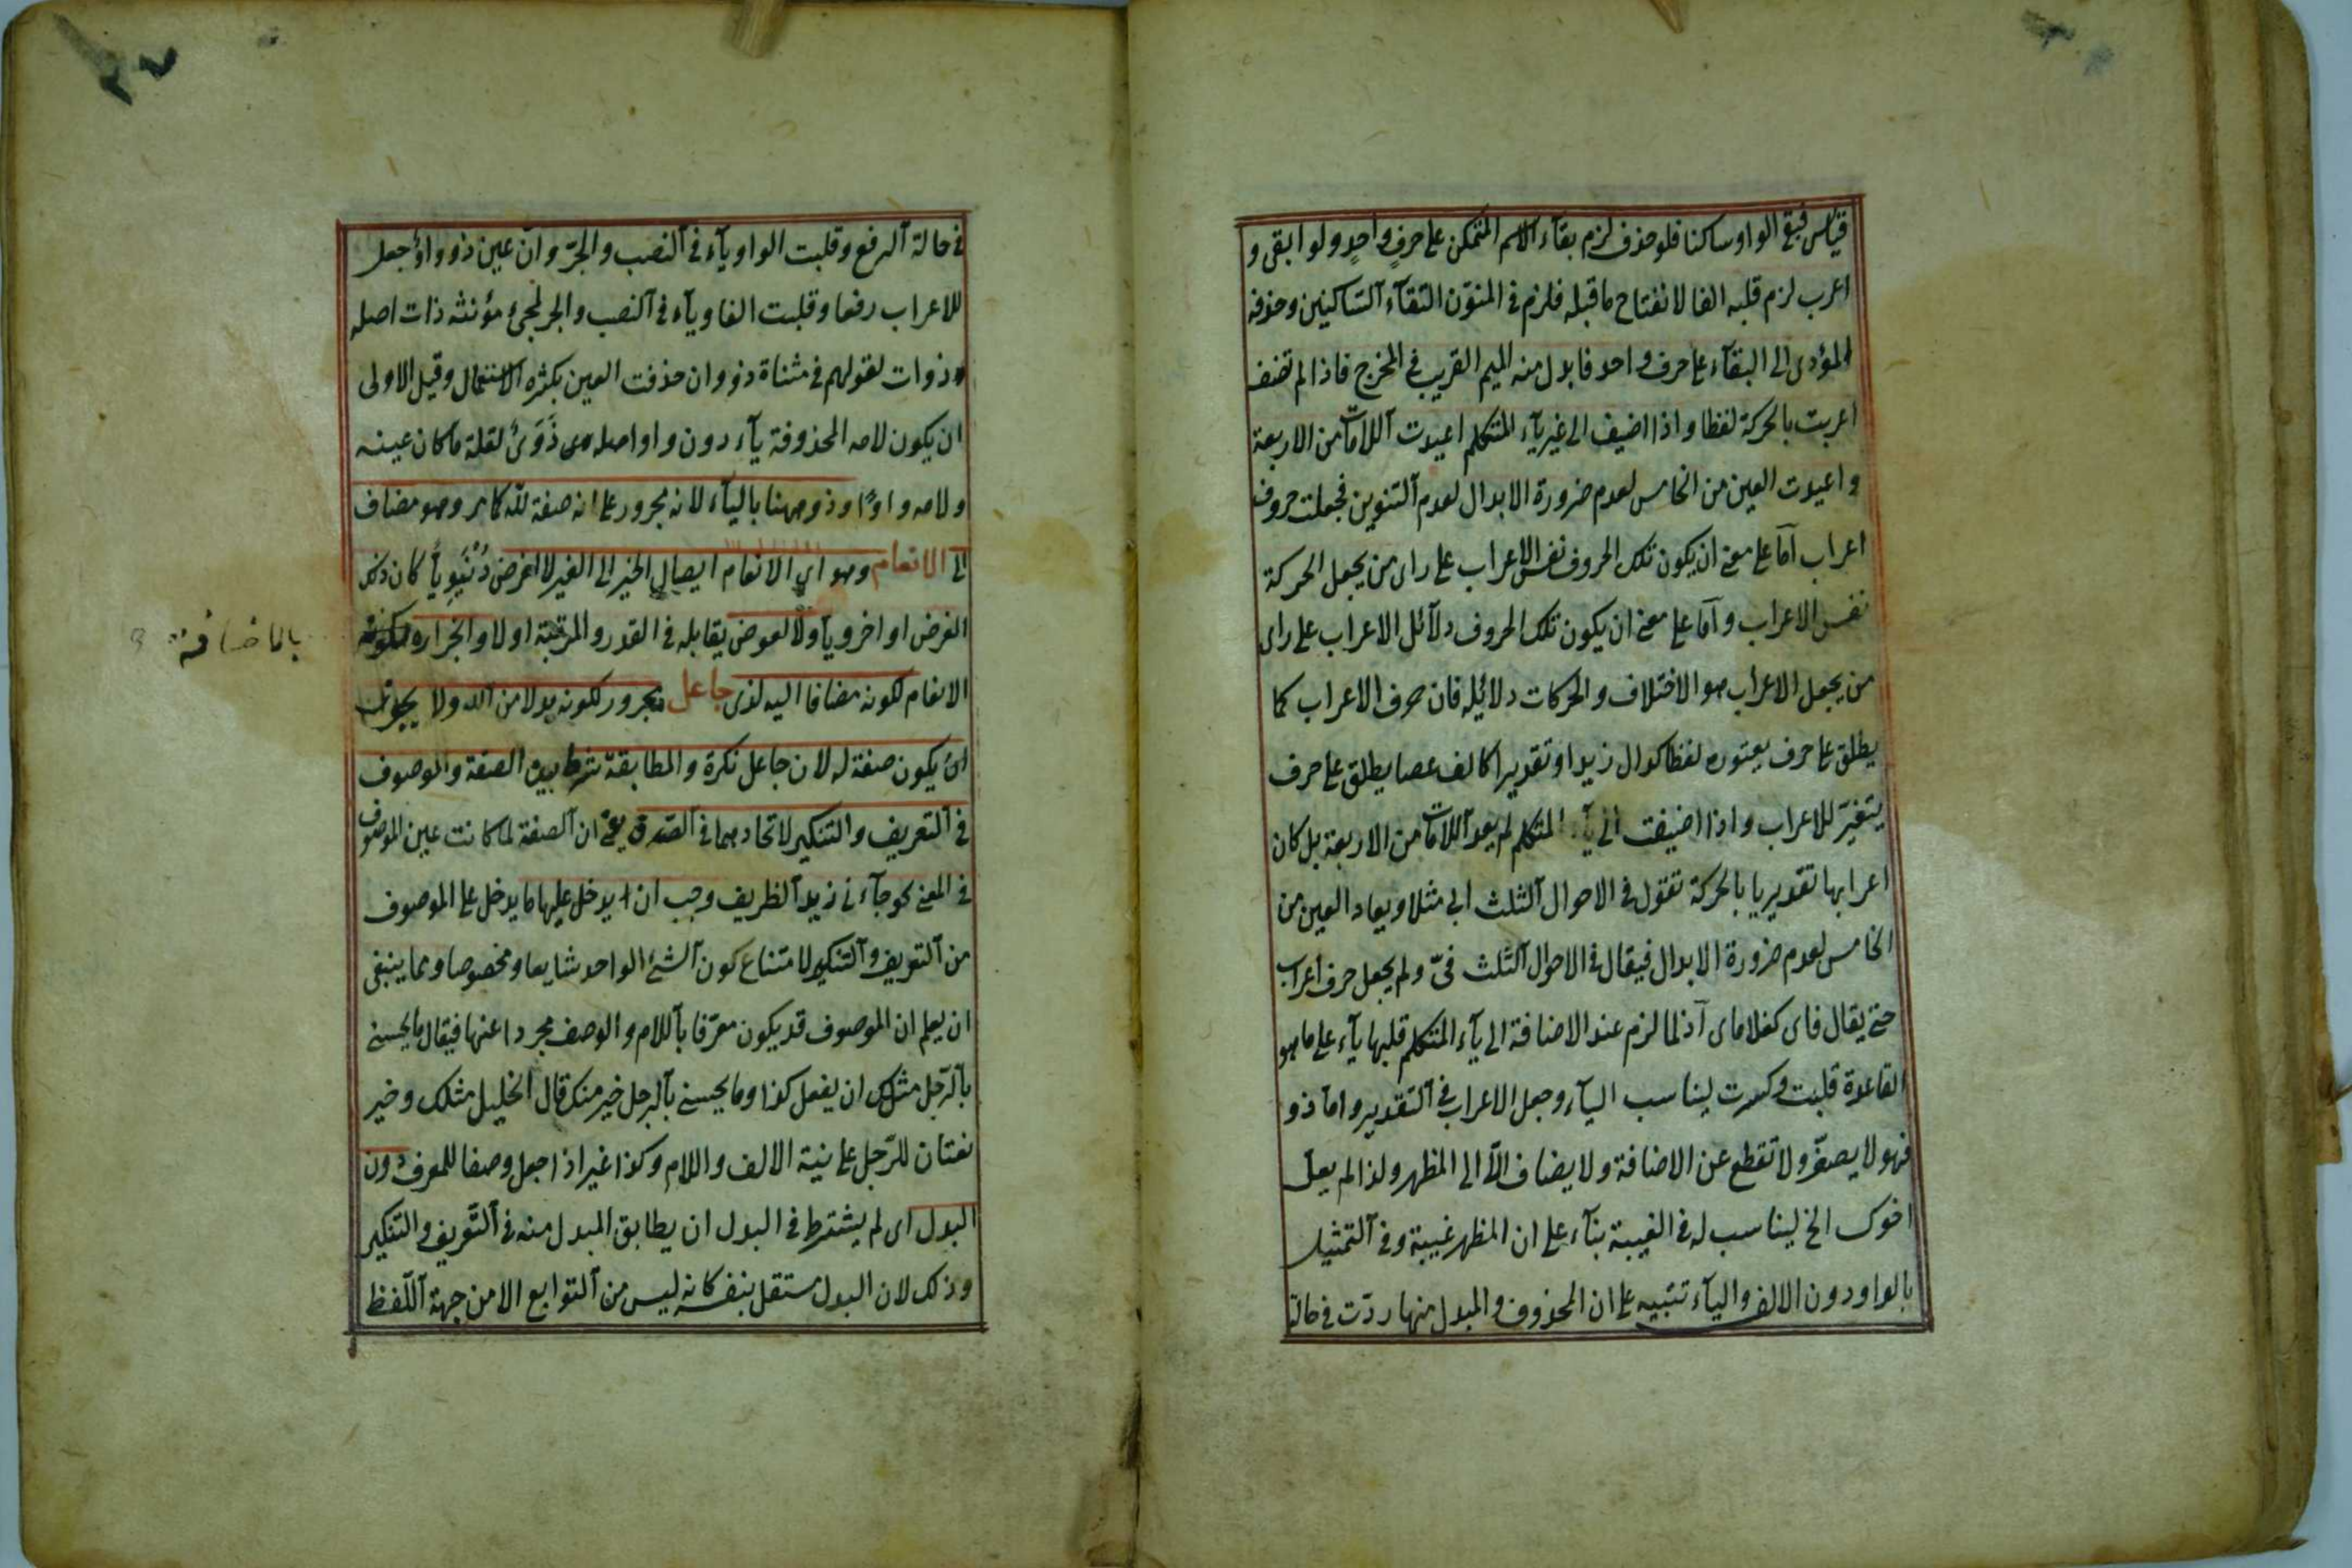 قياس فبقى الواو ساكنا فلو حذف لزم بقآء الاسم المتمكن على حرف واحد ولو ابقى و
اعرب لزم قلبه الفا لانفتاح ما قبله فلزم فى المنوّن التقآء آلسّاكنين وحذفه
المؤدى الى البقآء على حرف واحد فابدل منه الميم القريب فى المخرج فاذا لم تضف
اعربت بالحركة لفظا واذا اضيف الى غير يآء المتكلم اعيدت آللامات من الاربعة
واعيدت العين من الخامس لعدم ضرورة الابدال لعدم آلتنوين فجعلت حروف
اعراب آمّا على معنى ان يكون تلك الحروف نفس الاعراب على راى من يجعل الحركة
نفس الاعراب وآمّا على معنى ان يكون تلك الحروف دلآئل الاعراب على راى
من يجعل الاعراب هو الاختلاف والحركات دلائله فان حرف الاعراب كما
يطلق على حرف يعتوره لفظا كدال زيد او تقديرا كالف عصا يطلق على حرف
يتغيّر للاعراب واذا اضيفت الى يآء المتكلم لم يعد آللامات من الاربعة بل كان
اعرابها تقديريا بالحركة تقول فى الاحوال آلثلث ابى مثلا ويعاد العين من
الخامس لعدم ضرورة الابدال فيقال فى الاحوال آلثلث فىّ ولم يجعل حرف اعراب
حتى يقال فاى كغلاماى آذ لما لزم عند الاضافة الى يآء المتكلم قلبها يآء على ما هو
القاعدة قلبت وكسرت ليناسب اليآء وجعل الاعراب فى آلتقدير وامآ ذو
فهو لا يصغّر ولا تقطع عن الاضافة ولا يضاف الّا الى المظهر ولذا لم يعل
اخوك الخ ليناسب له فى الغيبة بنآء على ان المظهر غيبية وفى آلتمثيل
بالواو دون الالف واليآء تنبيه على ان المحذوف والمبدل منها ردّت فى حالة
فى حالة آلرفع وقلبت الواو يآء فى آلنصب والجرّ وآن عين ذو واوٌ جعل
للاعراب رفعا وقلبت الفا ويآء فى آلنصب والجر لمجئ مؤنثه ذات اصله
ذوات لقولهم فى مثناة ذووان حذفت العين بكثرة الاستعمال وقيل الاولى
ان يكون لامه المحذوفة يآء دون واو اصله ذَوَىٌ لقلة ما كان عينه
ولامه واوًا وذو ههنا باليآء لانه مجرور على انه صفة لله كامر وهو مضاف
الى الانعام وهو اى الانعام ايصال الخير الى الغير لا لغرض دُنْيَوِيأً كان ذلك
الغرض او اخرويآ ولا لعوض يقابله فى القدر والمرتبة اولا والجرارة لكونه
بالاضافة
الانعام لكونه مضافا اليه لذى جاعل مجرور لكونه بدلا من الله ولا يجوز
ان يكون صفة له لان جاعل نكرة والمطابقة شرط بين الصفة والموصوف
فى آلتعريف والتنكير لاتحادهما فى آلصّدق يعنى ان آلصفة لما كانت عين الموصوف
فى المعنى نحو جآءنى زيد آلظريف وجب ان يدخل عليها ما يدخل على الموصوف
من آلتعريف وآلتنكير لامتناع كون آلشئ الواحد شايعا ومخصوصا ومما ينبغى
ان يعلم ان الموصوف قد يكون معرّفا بآللام والوصف مجردا عنها فيقال ما يحسن
بآلرّجل مثلك ان يفعل كذا وما يحسن بآلرجل خير منك قال الخليل مثلك وخير
نعتان للرّجل على نية الالف واللام وكذا غير اذا جعل وصفا للمعرف دون
البدل اى لم يشترط فى البدل ان يطابق المبدل منه فى آلتّعريف والتنكير
وذلك لان البدل مستقل بنفسه كانه ليس من آلتوابع الا من جهة آللّفظ